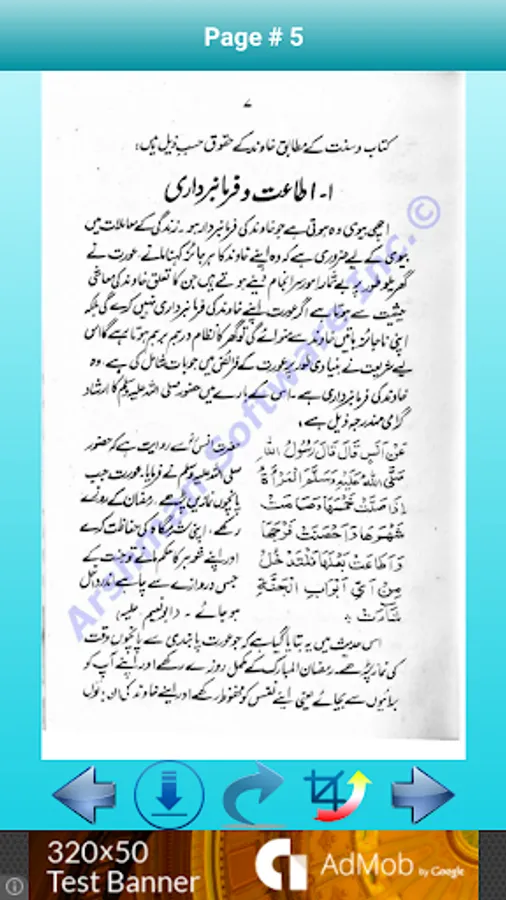 Page # 5
۷
کتاب و سنت کے مطابق خاوند کے حقوق حسب ذیل ہیں:
۱۔ اطاعت و فرمانبرداری
اچھی بیوی وہ ہوتی ہے جو خاوند کی فرمانبردار ہو۔ زندگی کے معاملات میں
بیوی کے لیے ضروری ہے کہ وہ اپنے خاوند کا ہر جائز کہنا مانے۔ عورت نے
گھریلو طور پر بے شمار امور سرانجام دینے ہوتے ہیں جن کا تعلق خاوند کی معاشی
حیثیت سے ہوتا ہے اگر عورت اپنے خاوند کی فرمانبرداری نہیں کرے گی بلکہ
اپنی ناجائز باتیں خاوند سے منوائے گی تو گھر کا نظام درہم برہم ہوتا ہے گا اس
لیے شریعت نے بنیادی طور پر عورت کے فرائض میں جو بات شامل کی ہے، وہ
خاوند کی فرمانبرداری ہے۔ اس کے بارے میں حضور صلی اللہ علیہ وسلم کا ارشاد
گرامی مندرجہ ذیل ہے:
عَنْ اَنَسٍ قَالَ قَالَ رَسُوْلُ اللهِ
صَلَّى اللهُ عَلَيْهِ وَسَلَّمَ الْمَرْأَةُ
اِذَا صَلَّتْ خَمْسَهَا وَصَامَتْ
شَهْرَهَا وَاَحْصَنَتْ فَرْجَهَا
وَاَطَاعَتْ بَعْلَهَا فَلْتَدْخُلْ
مِنْ اَيِّ اَبْوَابِ الْجَنَّةِ
شَاءَتْ ۔
حضرت انسؓ سے روایت ہے کہ حضور
صلی اللہ علیہ وسلم نے فرمایا۔ عورت جب
پانچوں نمازیں پڑھے، رمضان کے روزے
رکھے، اپنی شرمگاہ کی حفاظت کرے
اور اپنے شوہر کا حکم مانے تو جنت کے
جس دروازے سے چاہے اندر داخل
ہو جائے۔ (ابو نعیم، حلیہ)
اس حدیث میں یہ بتایا گیا ہے کہ جو عورت پابندی سے پانچوں وقت
کی نماز پڑھے۔ رمضان المبارک کے مکمل روزے رکھے اور اپنے آپ کو
برائیوں سے بچائے یعنی اپنے نفس کو محفوظ رکھے اور اپنے خاوند کی ان باتوں
Arshmaan Software Inc. ©
320×50
Test Banner
AdMob by Google